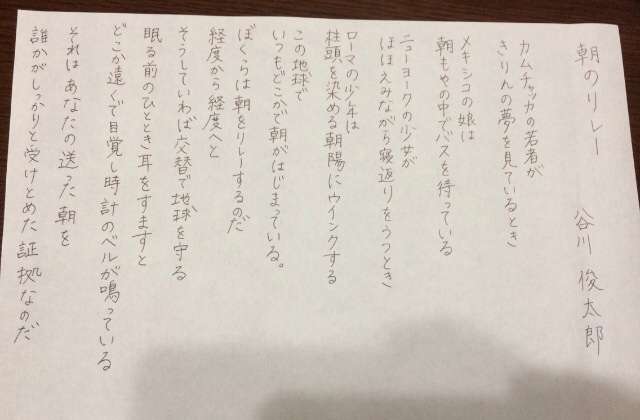 朝のリレー　谷川俊太郎
カムチャッカの若者が
きりんの夢を見ているとき
メキシコの娘は
朝もやの中でバスを待っている
ニューヨークの少女が
ほほえみながら寝返りをうつとき
ローマの少年は
柱頭を染める朝陽にウインクする
この地球で
いつもどこかで朝がはじまっている。
ぼくらは朝をリレーするのだ
経度から経度へと
そうしていわば交替で地球を守る
眠る前のひととき耳をすますと
どこか遠くで目覚し時計のベルが鳴っている
それはあなたの送った朝を
誰かがしっかりと受けとめた証拠なのだ